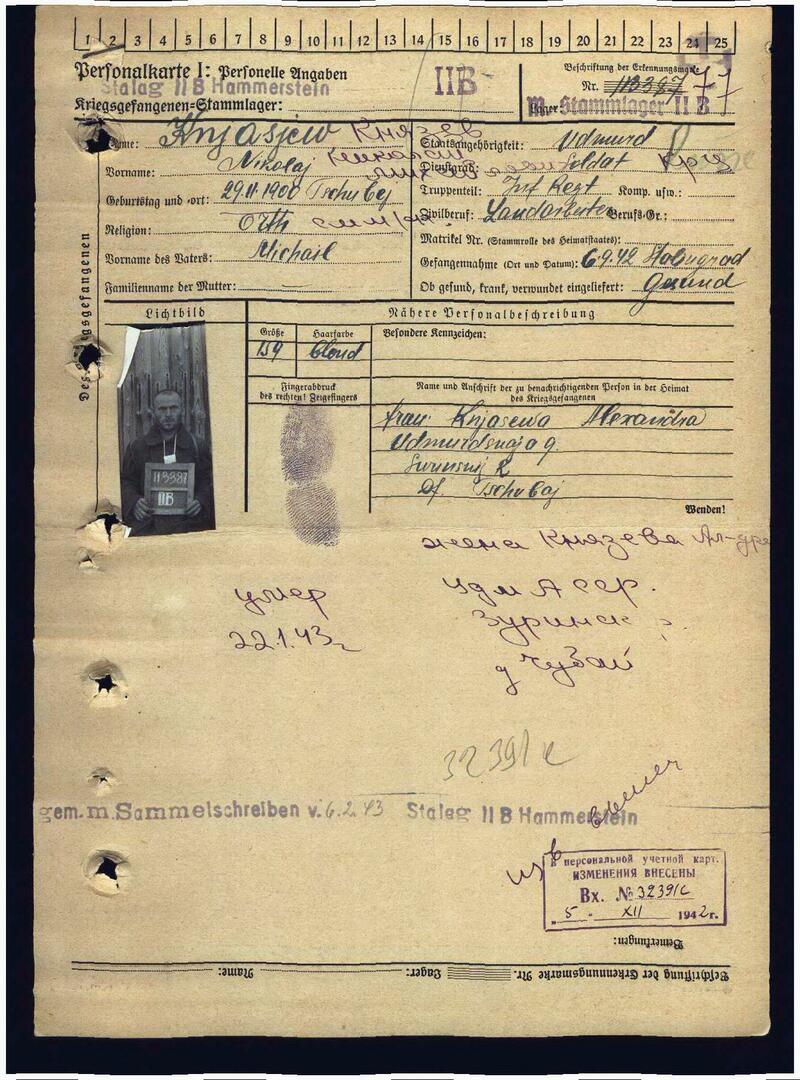 1 2 3 4 5 6 7 8 9 10 11 12 13 14 15 16 17 18 19 20 21 22 23 24 25
Personalkarte I: Personelle Angaben
Stalag II B Hammerstein
Kriegsgefangenen-Stammlager:
IIB
Beschriftung der Erkennungsmarke
Nr. 113387
Lager: M.-Stammlager II B
Des Kriegsgefangenen
Name: Knjasjew Князев
Vorname: Nikolaj Николай
Geburtstag und -ort: 29.11.1900 Tschuboj
Religion: Orth
Vorname des Vaters: Michail
Familienname der Mutter:
Staatsangehörigkeit: Udmurd
Dienstgrad: Soldat
Truppenteil: Inf Regt Komp. usw.:
Zivilberuf: Landarbeiter Berufs-Gr.:
Matrikel Nr. (Stammrolle des Heimatstaates):
Gefangennahme (Ort und Datum): 6.9.42 Stalingrad
Ob gesund, krank, verwundet eingeliefert: Gesund
Lichtbild
Nähere Personalbeschreibung
Größe Haarfarbe Besondere Kennzeichen:
159 blond
Fingerabdruck
des rechten! Zeigefingers
Name und Anschrift der zu benachrichtigenden Person in der Heimat
des Kriegsgefangenen
Frau: Knjasewa Alexandra
Df Tschubaj
113387
IIB
Wenden!
жена Князева Ал-дра
Удм АССР.
Зуринск р.
д Чубай
умер
22.1.43г
32391с
gem. m. Sammelschreiben v. 6.2.43 Stalag II B Hammerstein
В персональной учетной карт.
ИЗМЕНЕНИЯ ВНЕСЕНЫ
Вх. № 32391с
„5“ XII 1942г.
Bemerkungen:
Beschriftung der Erkennungsmarke Nr. Lager: Name: